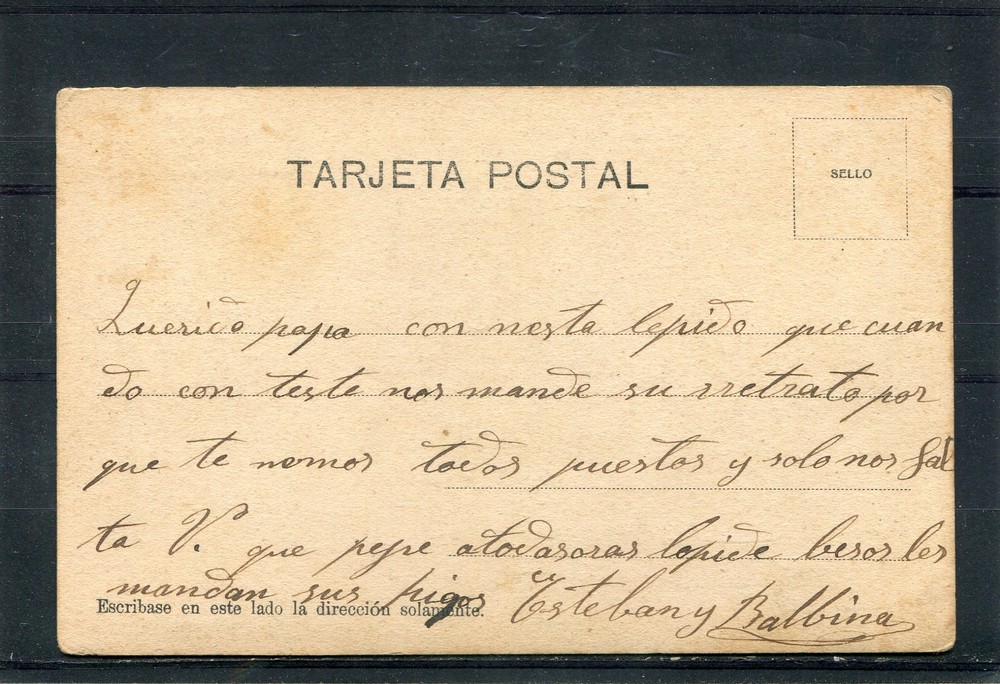 TARJETA POSTAL
SELLO
Querido papa con nesta lepido que cuan
do con teste nos mande su rretrato por
que te nemos todos puestos y solo nos fal
ta V. que pepe atodasoras lepide besos les
mandan sus higos Esteban y Balbina
Escribase en este lado la dirección solamente.